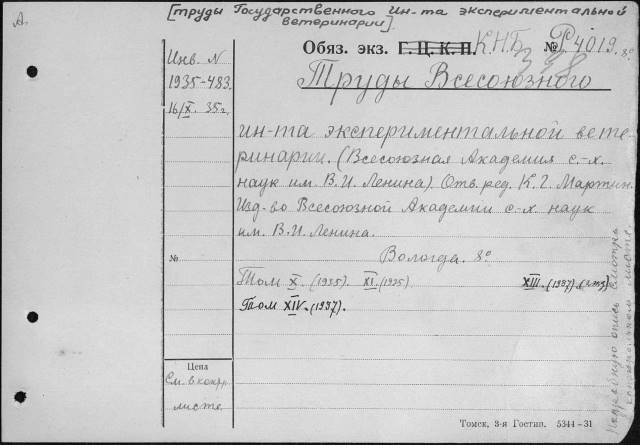 А.
[Труды Государственного Ин-та экспериментальной
ветеринарии].
Обяз. экз. Г. Ц. К. П. К.Н.Б. № Р 4019. 8°
338
Инв. N
1935-483.
16/X. 35г.
Труды Всесоюзного
ин-та экспериментальной вете-
ринарии. (Всесоюзная Академия с.-х.
наук им. В.И. Ленина). Отв. ред. К.Г. Мартин.
Изд-во Всесоюзной Академии с.-х. наук
им. В.И. Ленина.
№
Вологда. 8°
Том X. (1935). XI. (1935). XIII. (1937).
Том XIV. (1937).
Цена
См. в контр.
листе
Подробную опись смотри в
контрольном листе.
Томск, 3-я Гостип. 5344-31